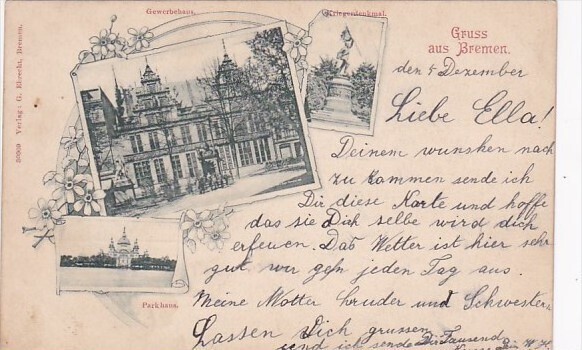 Gewerbehaus.
Kriegerdenkmal.
Gruss
aus Bremen.
30909 Verlag: G. Bloecht, Bremen.
Parkhaus.
den 4 Dezember
Liebe Ella!
Deinem wunsken nach
zu kommen sende ich
Dir diese Karte und hoffe
das sie Dich selbe wird dich
erfeuen. Das Wetter ist hier sehr
gut, wir gehn jeden Tag aus.
Meine Motter bruder und Schwestern
Lassen Dich grussen
und ich sende Dir Tausend